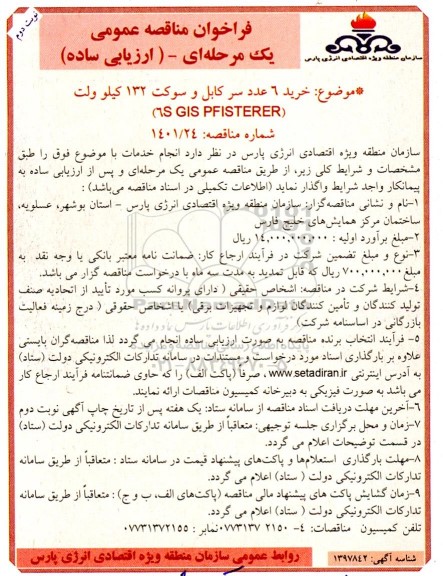 نوبت دوم
فراخوان مناقصه عمومی
یک مرحله‌ای - ( ارزیابی ساده)
سازمان منطقه ویژه اقتصادی انرژی پارس
*موضوع: خرید ۶ عدد سر کابل و سوکت ۱۳۲ کیلو ولت
(۶S GIS PFISTERER)
شماره مناقصه: ۱۴۰۱/۲۴
سازمان منطقه ویژه اقتصادی انرژی پارس در نظر دارد انجام خدمات با موضوع فوق را طبق
مشخصات و شرایط کلی زیر، از طریق مناقصه عمومی یک مرحله‌ای و پس از ارزیابی ساده به
پیمانکار واجد شرایط واگذار نماید (اطلاعات تکمیلی در اسناد مناقصه می‌باشد) :
۱-نام و نشانی مناقصه‌گزار: سازمان منطقه ویژه اقتصادی انرژی پارس - استان بوشهر، عسلویه،
ساختمان مرکز همایش‌های خلیج فارس
۲-مبلغ برآورد اولیه : ۱۴،۰۰۰،۰۰۰،۰۰۰ ریال
۳-نوع و مبلغ تضمین شرکت در فرآیند ارجاع کار: ضمانت نامه معتبر بانکی یا وجه نقد به
مبلغ ۷۰۰،۰۰۰،۰۰۰ ریال که قابل تمدید به مدت سه ماه با درخواست مناقصه گزار می باشد.
۴-شرایط شرکت در مناقصه: اشخاص حقیقی ( دارای پروانه کسب مورد تأیید از اتحادیه صنف
تولید کنندگان و تأمین کنندگان لوازم و تجهیزات برقی) یا اشخاص حقوقی ( درج زمینه فعالیت
بازرگانی در اساسنامه شرکت)
۵- فرآیند انتخاب برنده مناقصه به صورت ارزیابی ساده انجام می گردد لذا مناقصه‌گران بایستی
علاوه بر بارگذاری اسناد مورد درخواست و مستندات در سامانه تدارکات الکترونیکی دولت (ستاد)
به آدرس اینترنتی www.setadiran.ir، صرفاً (پاکت الف) را که حاوی ضمانتنامه فرآیند ارجاع کار
می باشد به صورت فیزیکی به دبیرخانه کمیسیون مناقصات ارائه نمایند.
۶-آخرین مهلت دریافت اسناد مناقصه از سامانه ستاد: یک هفته پس از تاریخ چاپ آگهی نوبت دوم
۷-زمان و محل برگزاری جلسه توجیهی: متعاقباً از طریق سامانه تدارکات الکترونیکی دولت (ستاد)
در قسمت توضیحات اعلام می گردد.
۸-مهلت بارگذاری استعلام‌ها و پاکت‌های پیشنهاد قیمت در سامانه ستاد : متعاقباً از طریق سامانه
تدارکات الکترونیکی دولت ( ستاد) اعلام می گردد.
۹-زمان گشایش پاکت های پیشنهاد مالی مناقصه (پاکت‌های الف، ب و ج) : متعاقباً از طریق سامانه
تدارکات الکترونیکی دولت ( ستاد) اعلام می گردد.
تلفن کمیسیون مناقصات: ۴- ۲۱۵۰ ۰۷۷۳۱۳۷نمابر : ۰۷۷۳۱۳۷۲۱۵۵
روابط عمومی سازمان منطقه ویژه اقتصادی انرژی پارس
شناسه آگهی: ۱۳۹۷۸۴۲